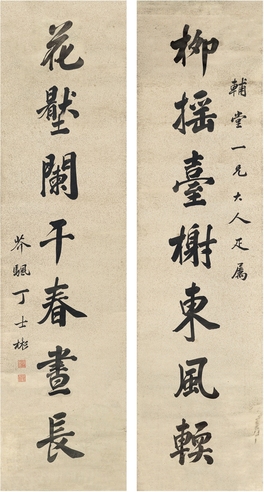 輔堂一兄大人正屬
柳搖臺榭東風輭
花壓闌干春晝長
芥颿丁士彬